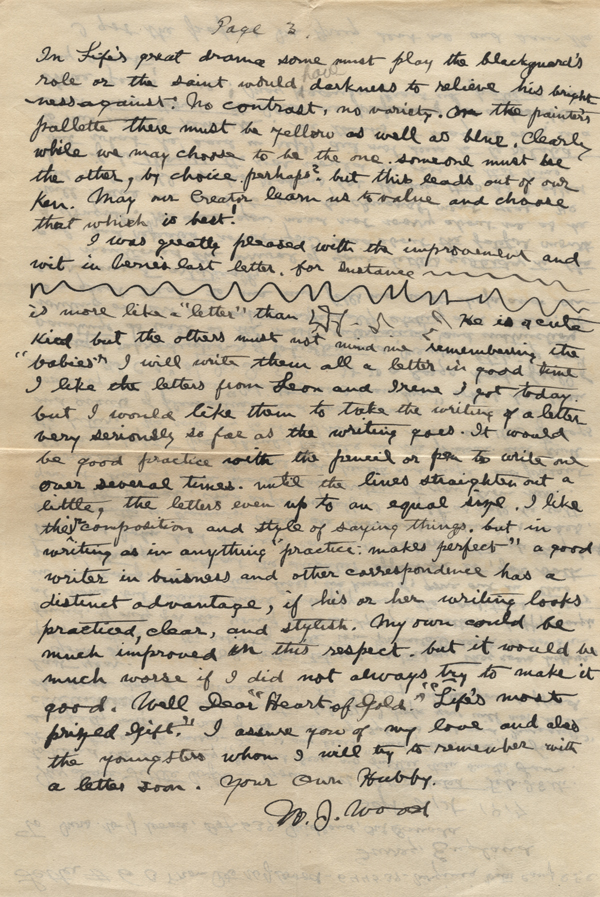 Page 3.
In Life's great drama some must play the blackguard's
role or the saint would have darkness to relieve his bright
ness against. No contrast, no variety. On the painters
pallette there must be yellow as well as blue. Clearly
while we may choose to be the one. someone must be
the other, by choice perhaps? but this leads out of our
Ken. May our Creator learn us to value and choose
that which is best!
I was greatly pleased with the improvement and
wit in last letter. for instance
is more like a "letter" than He is a cute
Kied but the others must not mind me remembering the
"babies" I will write them all a letter in good time
I like the letters from Leon and Irene I got today.
but I would like them to take the writing of a letter
very seriously so far as the writing goes. It would
be good practice with the pencil or pen to write one
over several times. until the lines straighten out a
little, the letters even up to an equal size. I like
the composition and style of saying things. but in
writing as in anything "practice makes perfect" a good
writer in buisness and other correspondence has a
distinct advantage, if his or her writing looks
practiced, clear, and stylish. My own could be
much improved in this respect. but it would be
much worse if I did not always try to make it
good. Well Dear "Heart of Gold." "Life's most
prized Gift." I assure you of my love and also
the youngsters whom I will try to remember with
a letter soon. Your Own Hubby.
W. J. Wood